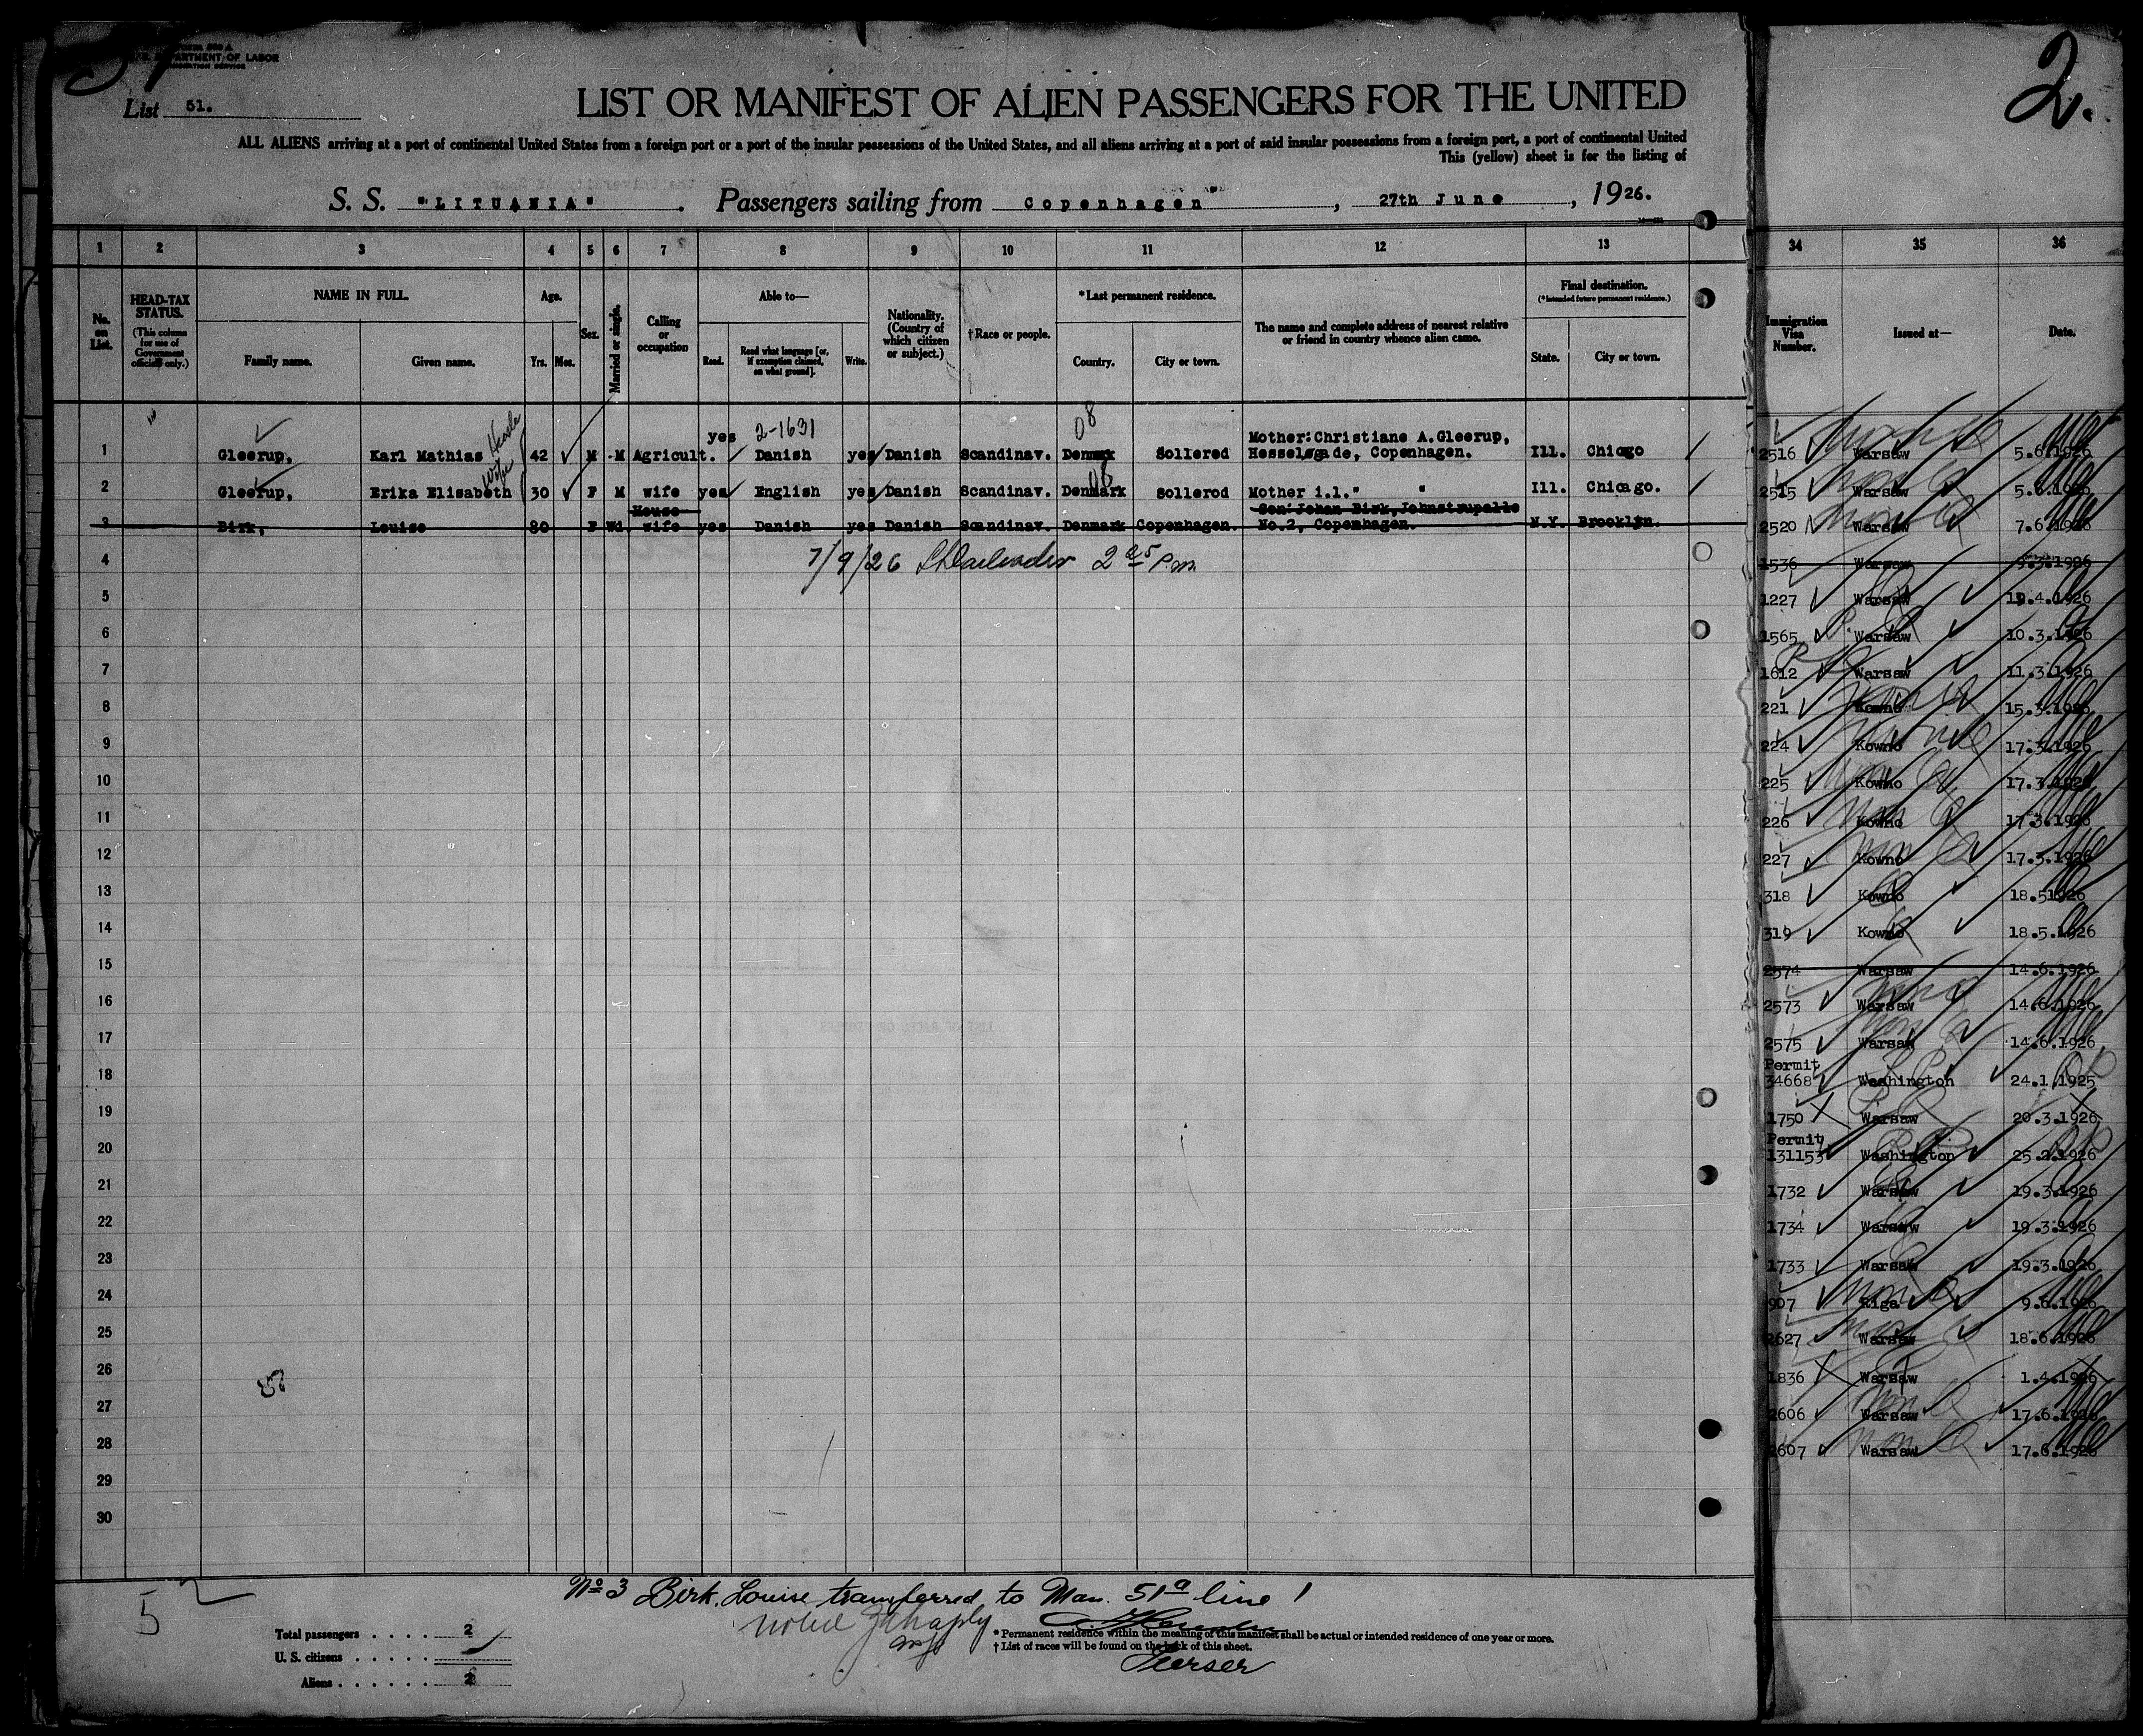 DEPARTMENT OF LABOR
IMMIGRATION SERVICE
List 51.
LIST OR MANIFEST OF ALIEN PASSENGERS FOR THE UNITED
ALL ALIENS arriving at a port of continental United States from a foreign port or a port of the insular possessions of the United States, and all aliens arriving at a port of said insular possessions from a foreign port, a port of continental United
This (yellow) sheet is for the listing of
S. S. "LITUANIA" . Passengers sailing from Copenhagen , 27th June , 1926.
1 2 3 4 5 6 7 8 9 10 11 12 13
No. on List.
HEAD-TAX STATUS. (This column for use of Government officials only.)
NAME IN FULL.
Family name. Given name.
Age.
Yrs. Mos.
Sex.
Married or single.
Calling or occupation
Able to—
Read. Read what language [or, if exemption claimed, on what ground]. Write.
Nationality. (Country of which citizen or subject.)
†Race or people.
*Last permanent residence.
Country. City or town.
The name and complete address of nearest relative or friend in country whence alien came.
Final destination.
(*Intended future permanent residence.)
State. City or town.
yes 2-1631 08 Mother:Christiane A.Gleerup,
1 Gleerup, Karl Mathias 42 M M Agricult. Danish yes Danish Scandinav. Denmark Sollerod Hesselsgade, Copenhagen. Ill. Chicago
wife
2 Gleerup, Erika Elisabeth 30 F M wife yes English yes Danish Scandinav. Denmark Sollerod Mother i.l." " Ill. Chicago.
08
House Son:Johan Birk,Johnstrupalle
3 Birk, Louise 80 F Wd. wife yes Danish yes Danish Scandinav. Denmark Copenhagen. No.2, Copenhagen. N.Y. Brooklyn.
4 7/9/26 2 05 P.m.
5
6
7
8
9
10
11
12
13
14
15
16
17
18
19
20
21
22
23
24
25
26
27
28
29
30
No 3 Birk, Louise transferred to Man. 51a line 1
5
Total passengers . . . . 2
U. S. citizens . . . . .
Aliens . . . . . . 2
* Permanent residence within the meaning of this manifest shall be actual or intended residence of one year or more.
† List of races will be found on the back of this sheet.
Purser
2.
34 35 36
Immigration Visa Number. Issued at— Date.
2516 Warsaw 5.6.1926
2515 Warsaw 5.6.1926
2520 Warsaw 7.6.1926
1536 Warsaw 9.3.1926
1227 Warsaw 19.4.1926
1565 Warsaw 10.3.1926
1612 Warsaw 11.3.1926
221 Kowno 15.3.1926
224 Kowno 17.3.1926
225 Kowno 17.3.1926
226 Kowno 17.3.1926
227 Kowno 17.3.1926
318 Kowno 18.5.1926
319 Kowno 18.5.1926
2574 Warsaw 14.6.1926
2573 Warsaw 14.6.1926
2575 Warsaw 14.6.1926
Permit
34668 Washington 24.1.1925
1750 Warsaw 20.3.1926
Permit
131153 Washington 25.2.1926
1732 Warsaw 19.3.1926
1734 Warsaw 19.3.1926
1733 Warsaw 19.3.1926
907 Riga 9.6.1926
2627 Warsaw 18.6.1926
1836 Warsaw 1.4.1926
2606 Warsaw 17.6.1926
2607 Warsaw 17.6.1926